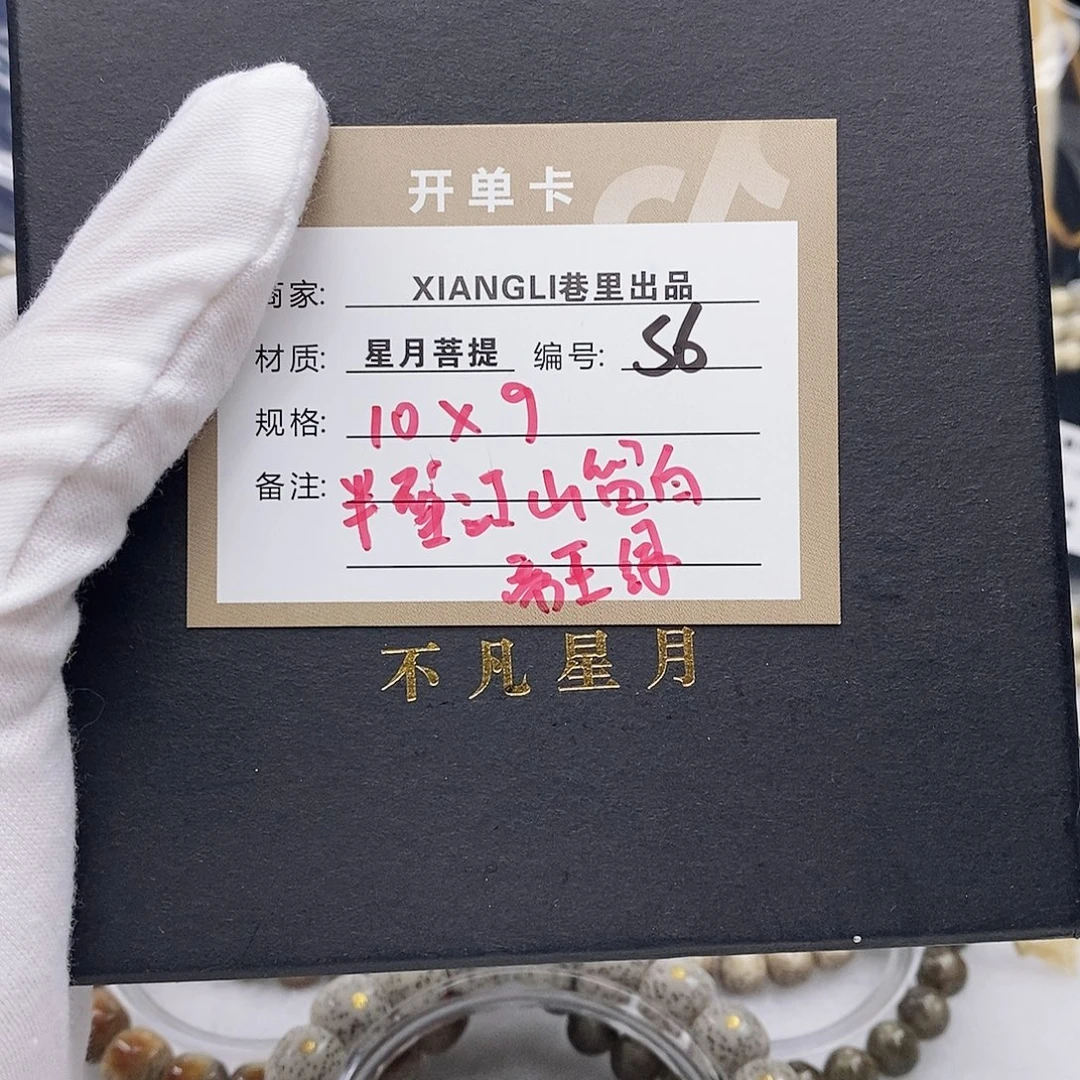 开单卡
商家: XIANGLI巷里出品
材质: 星月菩提 编号: S6
规格: 10×9
备注: 半壁江山笛白
帝王绿
不凡星月